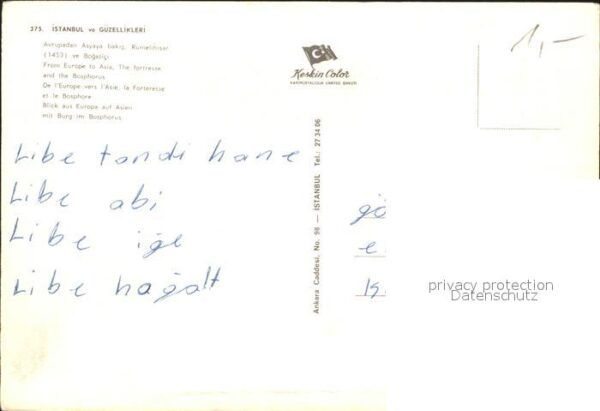 375. ISTANBUL ve GÜZELLİKLERİ
Avrupadan Asyaya bakış, Rumelihisar
(1453) ve Boğaziçi
From Europe to Asia, The fortresse
and the Bosphorus
De l'Europe vers l'Asie, la Forteresse
et le Bosphore
Blick aus Europa auf Asien
mit Burg im Bosphorus
Keskin Color
KARTPOSTALCILIK LIMITED ŞİRKETİ
1,-
Libe tondi hane
Libe abi
Libe iğe
Libe hağalt
Ankara Caddesi, No. 98 — ISTANBUL Tel.: 27 34 06
gö
e
privacy protection
Datenschutz